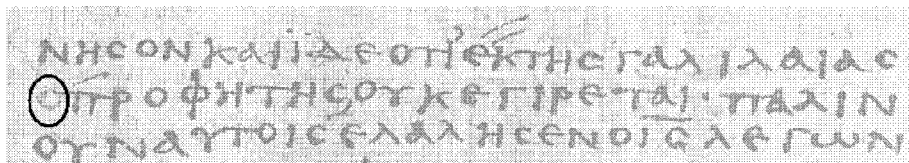 νησον και ϊδε οτι εκ της γαλιλαιας
ο προφητης ουκ εγιρεται · παλιν
ουν αυτοις ελαλησεν ο ι̅ς̅ λεγων